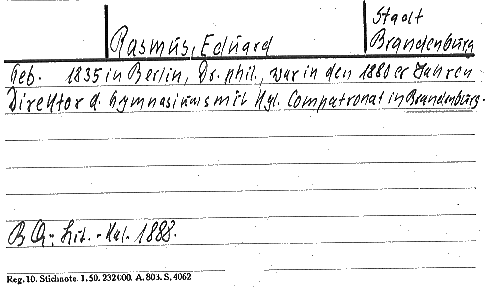 Stadt
Rasmus, Eduard
Brandenburg
Geb. 1835 in Berlin, Dr. phil., war in den 1880er Jahren
Direktor d. Gymnasiums mit Kgl. Compatronat in Brandenburg.
B Q.: Lit.-Kal. 1888.
Reg. 10. Stichnote. 1. 50. 232000. A. 803. S. 4062